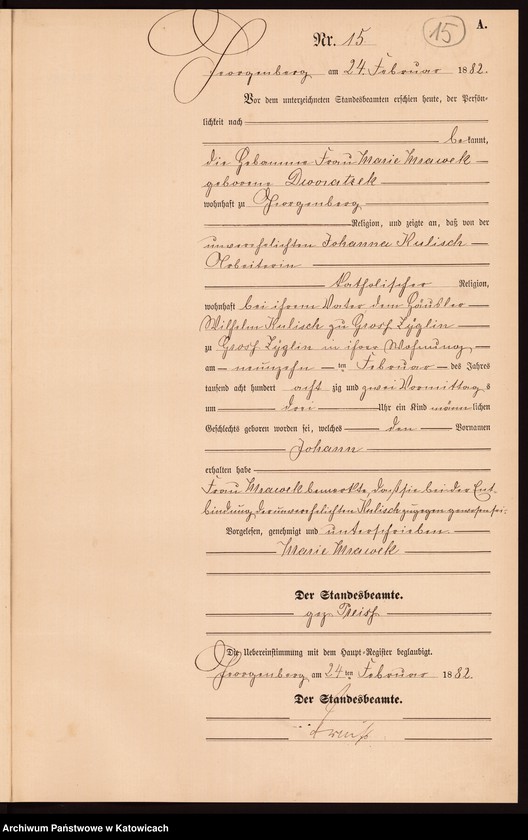 A.
Nr. 15
15
Georgenberg am 24. Februar 1882.
Vor dem unterzeichneten Standesbeamten erschien heute, der Persön-
lichkeit nach
bekannt,
die Hebamme Frau Marie Mrawek
geborene Dworatzek
wohnhaft zu Georgenberg
Religion, und zeigte an, daß von der
unverehelichten Johanna Kulisch
Arbeiterin
katholischer Religion,
wohnhaft bei ihrem Vater dem Häusler
Wilhelm Kulisch zu Groß Zyglin
zu Groß Zyglin in ihrer Wohnung
am neunzehn ten Februar des Jahres
tausend acht hundert achtzig und zwei Vormittags
um drei Uhr ein Kind männlichen
Geschlechts geboren worden sei, welches den Vornamen
Johann
erhalten habe
Frau Mrawek bemerkte, daß sie bei der Ent-
bindung der unverehelichten Kulisch zugegen gewesen sei.
Vorgelesen, genehmigt und unterschrieben.
Marie Mrawek
Der Standesbeamte.
gez.
Die Uebereinstimmung mit dem Haupt-Register beglaubigt.
Georgenberg am 24ten Februar 1882.
Der Standesbeamte.
Archiwum Państwowe w Katowicach